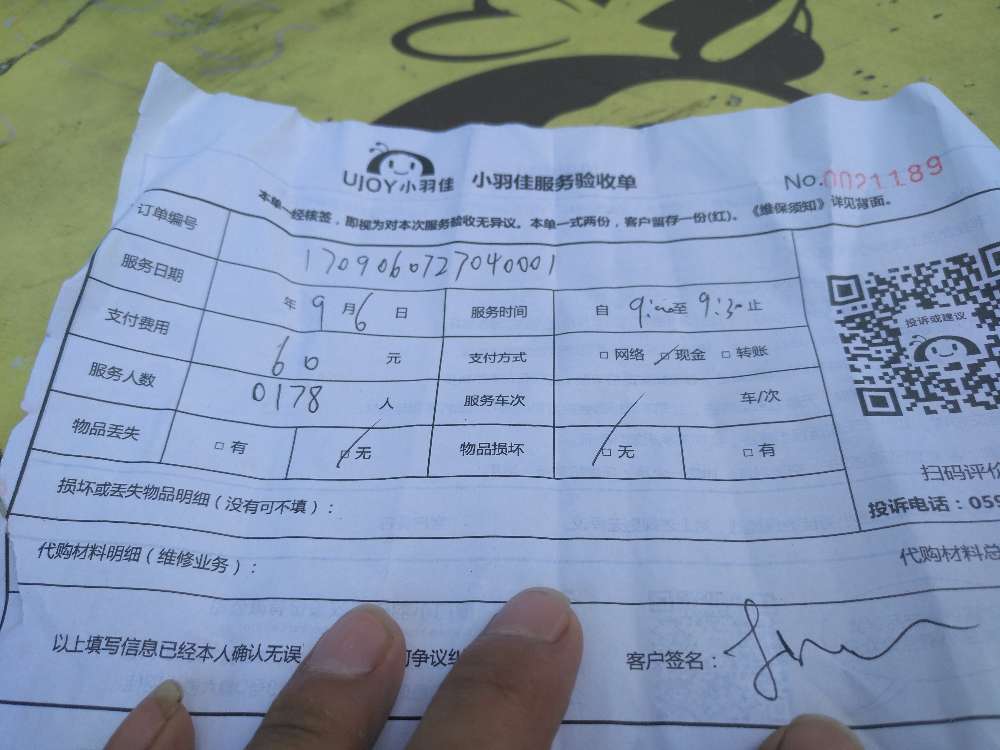 UJOY小羽佳 小羽佳服务验收单 No.0021189
本单一经核签，即视为对本次服务验收无异议。本单一式两份，客户留存一份(红)。《维保须知》详见背面。
订单编号 1709060727040001
服务日期 年 9 月 6 日 服务时间 自 9:00 至 9:30 止
支付费用 60 元 支付方式 □ 网络 □ 现金 □ 转账
服务人数 0178 人 服务车次 车/次
物品丢失 □ 有 □ 无 物品损坏 □ 无 □ 有
投诉或建议
扫码评价
投诉电话：059
损坏或丢失物品明细（没有可不填）：
代购材料明细（维修业务）： 代购材料总
以上填写信息已经本人确认无误 争议 客户签名：